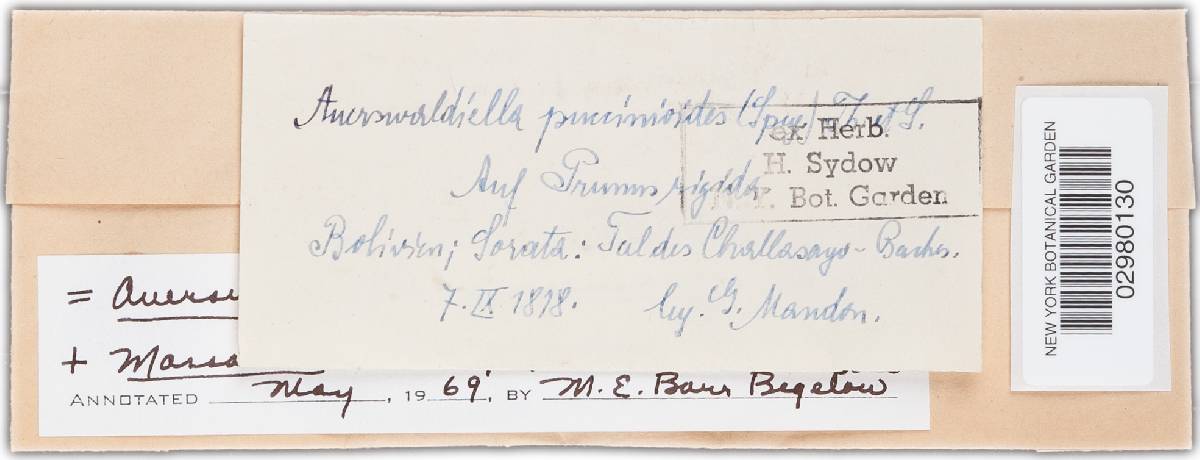 Auerswaldiella puccinioides (Speg.) Th. et S.
ex Herb.
H. Sydow
Auf Prunus rigida
N.Y. Bot. Garden
Bolivien; Sorata: Tal des Challasayo-Baches.
7. IX 1898. leg. G. Mandon.
= Auersw
+ Massa
ANNOTATED May, 1969, BY M. E. Barr Bigelow
NEW YORK BOTANICAL GARDEN
02980130